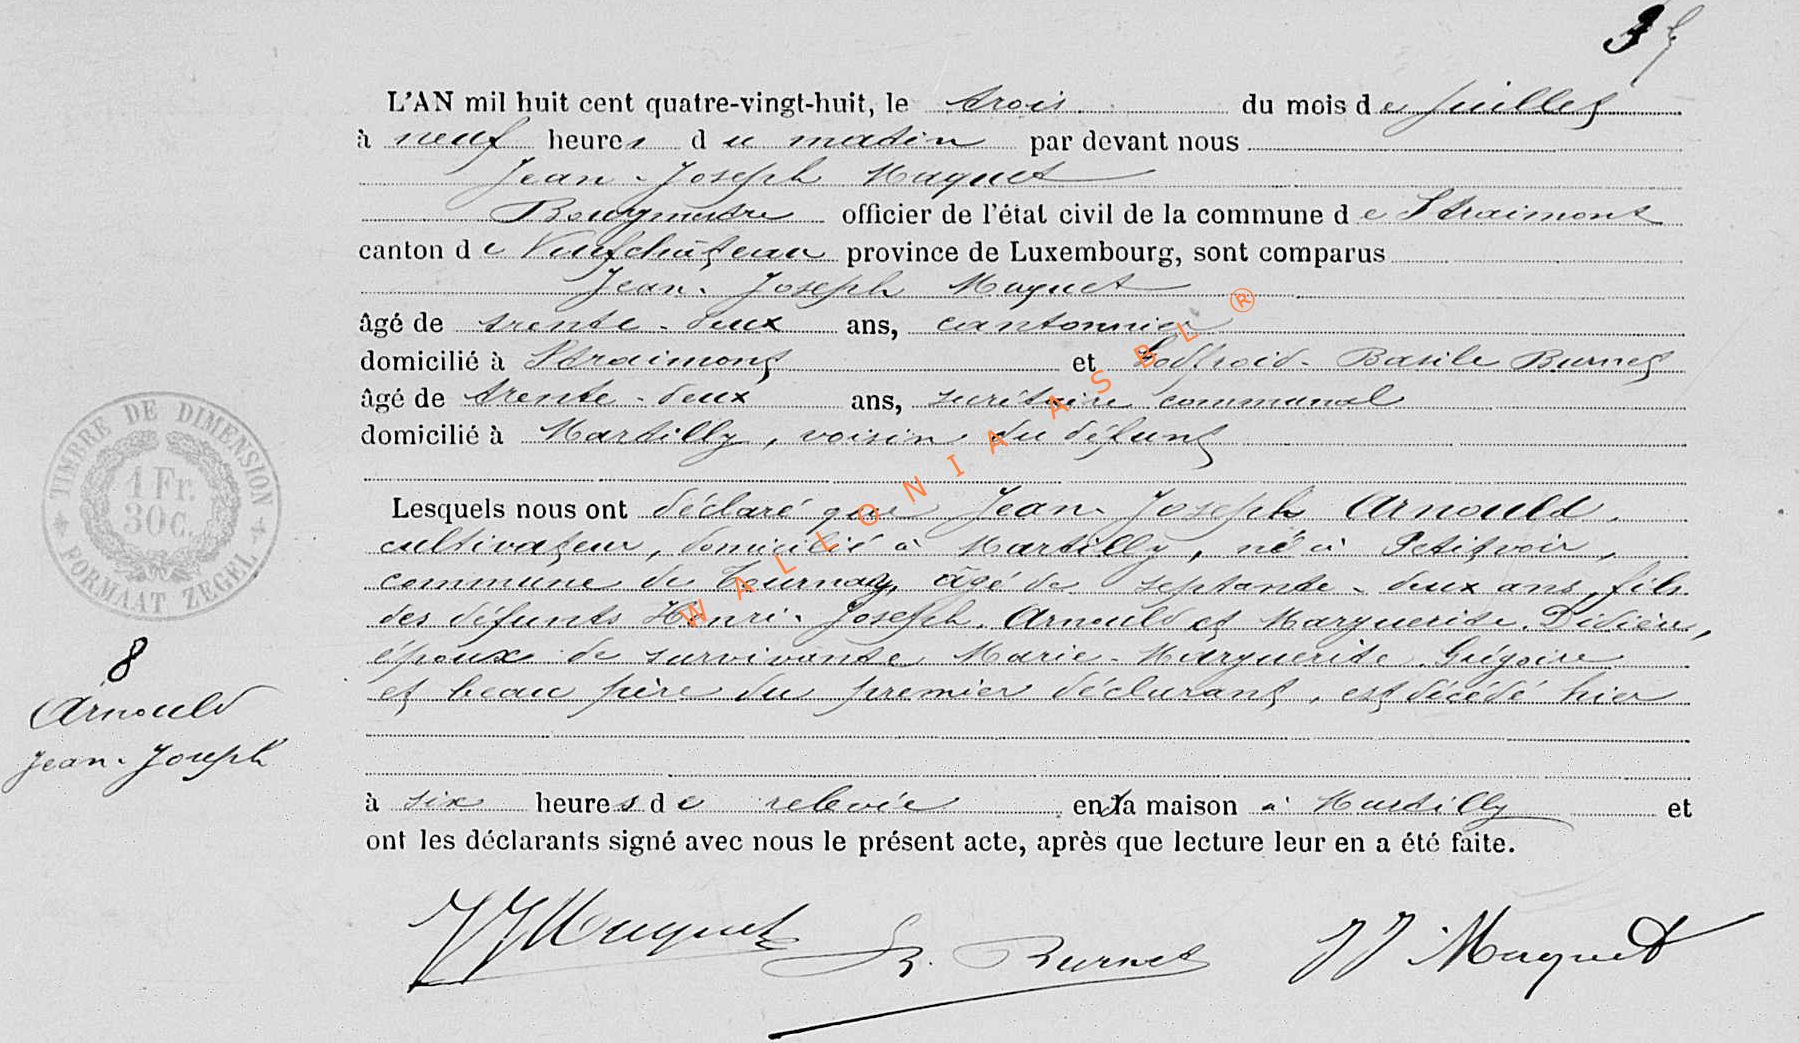 35
L'AN mil huit cent quatre-vingt-huit, le trois du mois de juillet
à neuf heures du matin par devant nous
Jean-Joseph Maquet
Bourgmestre officier de l'état civil de la commune de Straimont
canton de Neufchâteau province de Luxembourg, sont comparus
Jean-Joseph Maquet
âgé de trente-deux ans, cantonnier
domicilié à Straimont et Godfroid-Basile Burnet
âgé de trente-deux ans, secrétaire communal
domicilié à Martilly, voisin du défunt
Lesquels nous ont déclaré que Jean-Joseph Arnould,
cultivateur, domicilié à Martilly, né à Petitvoir,
commune de Tournay, âgé de septante-deux ans, fils
des défunts Henri-Joseph Arnould et Marguerite Didier,
époux de survivante Marie-Marguerite Grégoire
et beau père du premier déclarant, est décédé hier
à six heures de relevée en la maison à Martilly et
ont les déclarants signé avec nous le présent acte, après que lecture leur en a été faite.
JJ Maquet B. Burnet JJ Maquet
TIMBRE DE DIMENSION
1 Fr.
30 C.
FORMAAT ZEGEL
8
Arnould
Jean-Joseph
WALLONIA ASBL ®